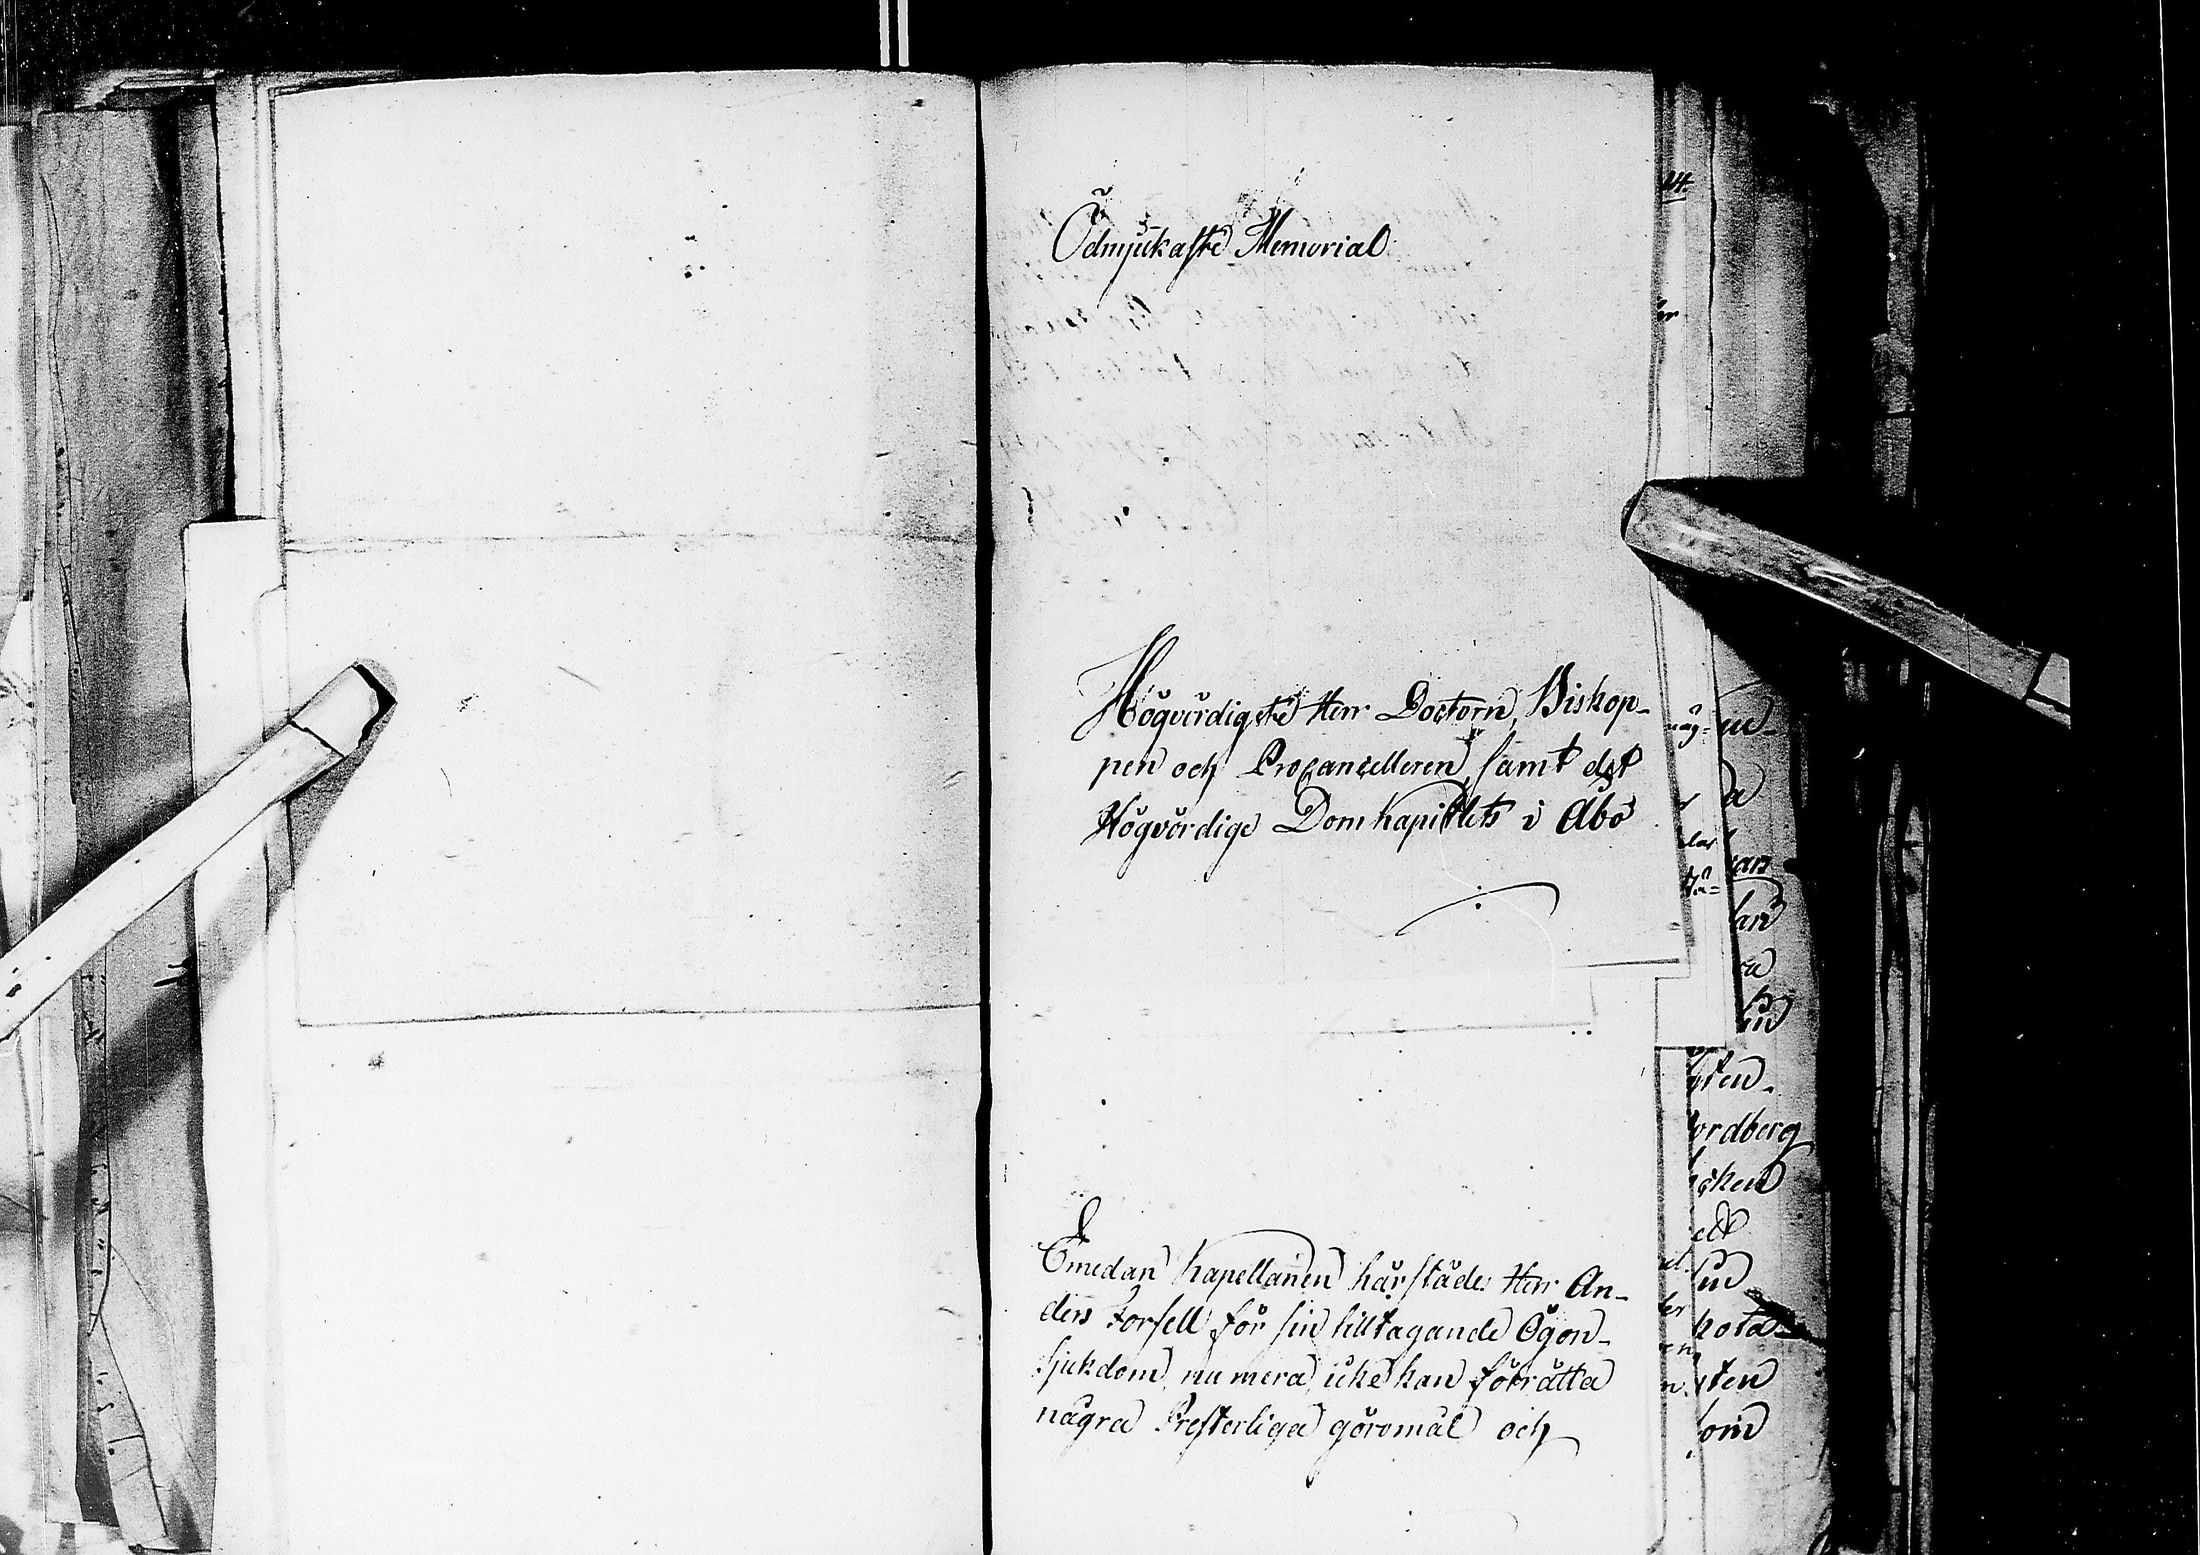 Ödmjukaste Memorial
Högvördigste Herr Doctorn, Biskop-
pen och Procanzelleren, samt det
Högvördige Domkapitlets i Åbo
Emedan Kapellanen härstädes Herr An-
ders Forsell för sin tilltagande Ögon-
sjukdom, nu mera icke kan förrätta
några Presterliga göromål och
ordberg